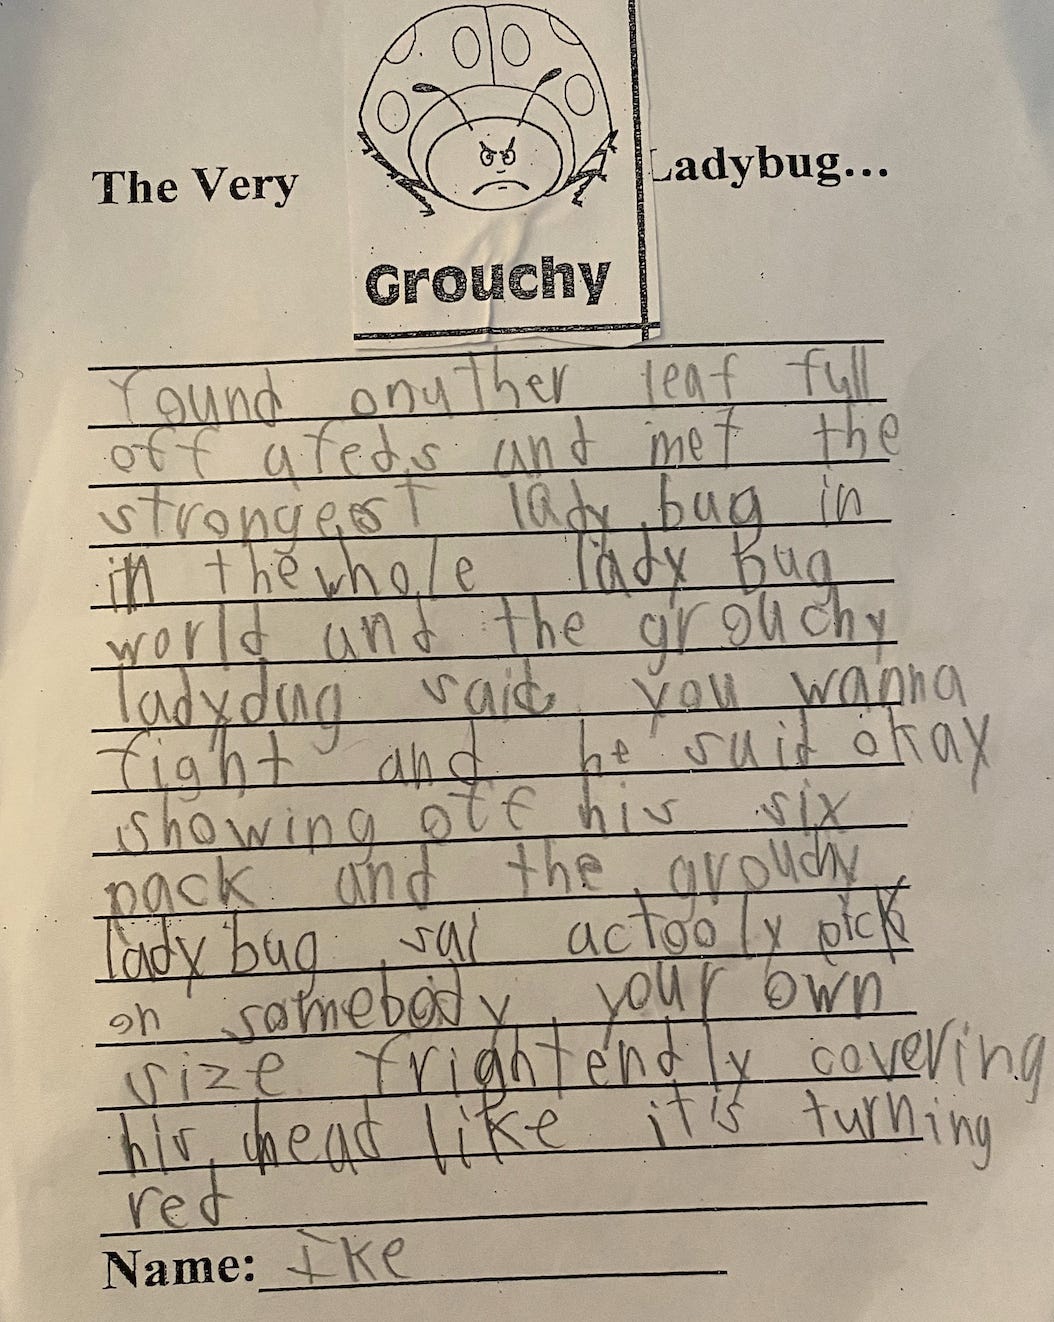 The Very Grouchy Ladybug...
found onuther leaf full
off afeds and met the
strongesst lady bug in
in the whole lady bug
world and the grouchy
ladydug said you wanna
fight and he suid okay
showing off his six
pack and the grouchy
lady bug sai actooly pick
on somebody your own
size frightendly covering
his head like it's turning
red
Name: Ike